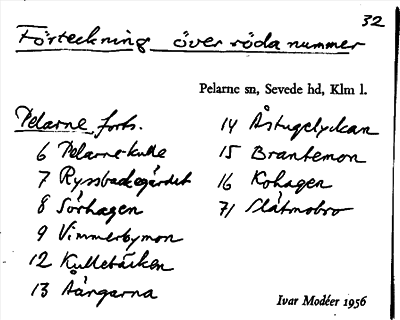 32
Förteckning över röda nummer
Pelarne sn, Sevede hd, Klm l.
Pelarne, forts.
6 Pelarne kulle
7 Ryssbackegärdet
8 Sörhagen
9 Vimmerbymon
12 Kullebäcken
13 Åängarna
14 Åstugelyckan
15 Brantemon
16 Kohagen
71 Slåtmobro
Ivar Modéer 1956